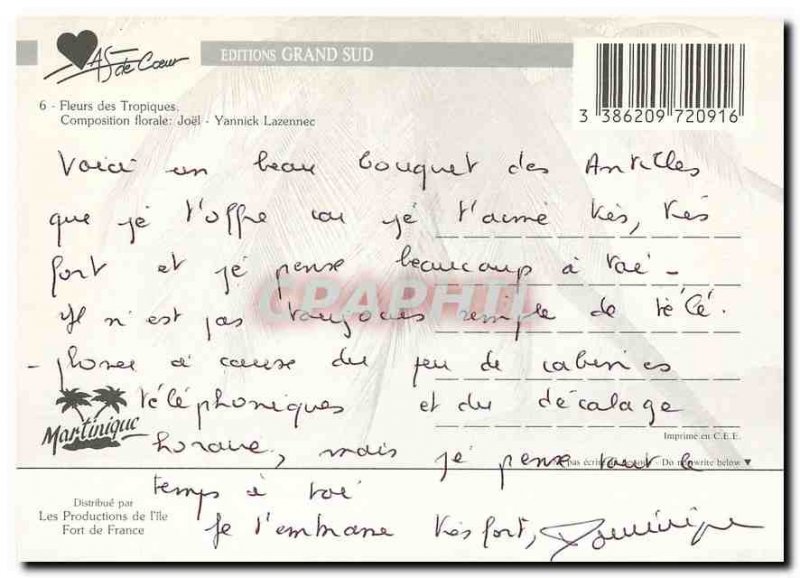 As de Cœur
EDITIONS GRAND SUD
6 - Fleurs des Tropiques.
Composition florale: Joël - Yannick Lazennec
3 386209 720916
Voici un beau bouquet des Antilles
que je t'offre car je t'aime très, très
fort et je pense beaucoup à toi -
Il n'est pas toujours simple de télé.
- phoner à cause du peu de cabines
téléphoniques et du décalage
Martinique
Imprimé en C.E.E.
horaire, mais je pense tout le
pas écrire - Do not write below ▼
temps à toi
Distribué par
Les Productions de l'Ile
Fort de France
Je t'embrasse très fort, Dominique
CPAPHIL